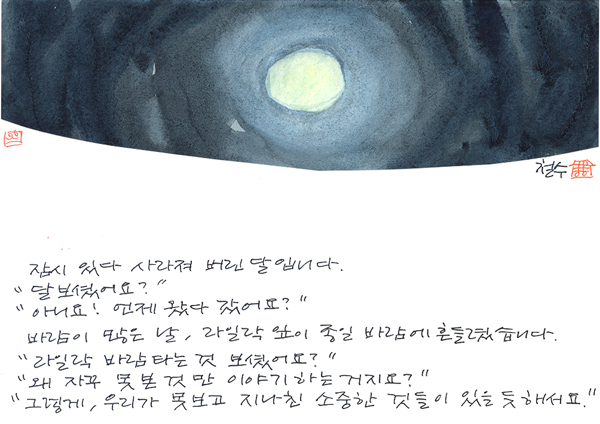 철수
잠시 있다 사라져 버린 달입니다.
"달 보셨어요?"
"아니요! 언제 왔다 갔어요?"
바람이 많은 날, 라일락 잎이 종일 바람에 흔들렸습니다.
"라일락 바람타는 것 보셨어요?"
"왜 자꾸 못 본 것만 이야기하는 거지요?"
"그렇게, 우리가 못보고 지나친 소중한 것들이 있을 듯 해서요."